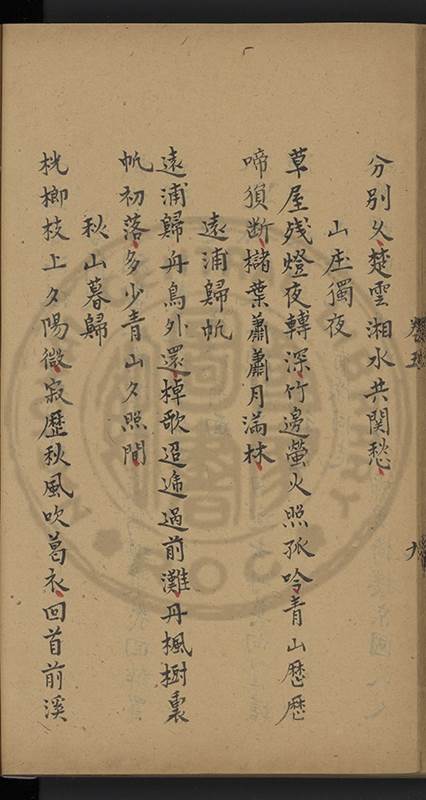 分別久楚雲湘水共関愁
山庄獨夜
草屋残燈夜轉深竹邊螢火照孤吟青山歷歷
啼猿断櫧葉蕭蕭月滿林
遠浦歸帆
遠浦歸舟鳥外還棹歌迢遞過前灘丹楓樹裏
帆初落多少青山夕照間
秋山暮歸
桄榔枝上夕陽微寂歷秋風吹葛衣回首前溪